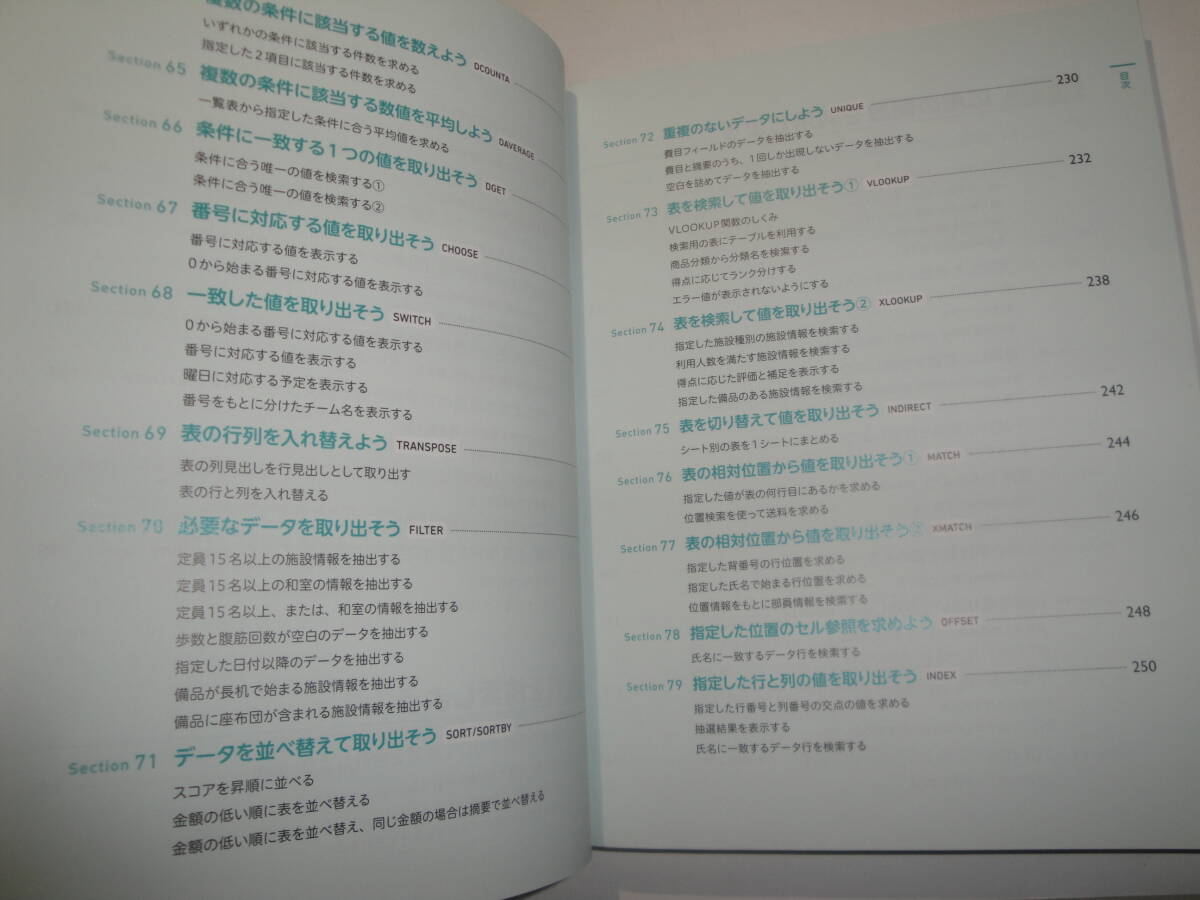 複数の条件に該当する値を数えよう DCOUNTA
いずれかの条件に該当する件数を求める
指定した2項目に該当する件数を求める
Section 65 複数の条件に該当する数値を平均しよう DAVERAGE
一覧表から指定した条件に合う平均値を求める
Section 66 条件に一致する1つの値を取り出そう DGET
条件に合う唯一の値を検索する①
条件に合う唯一の値を検索する②
Section 67 番号に対応する値を取り出そう CHOOSE
番号に対応する値を表示する
0から始まる番号に対応する値を表示する
Section 68 一致した値を取り出そう SWITCH
0から始まる番号に対応する値を表示する
番号に対応する値を表示する
曜日に対応する予定を表示する
番号をもとに分けたチーム名を表示する
Section 69 表の行列を入れ替えよう TRANSPOSE
表の列見出しを行見出しとして取り出す
表の行と列を入れ替える
Section 70 必要なデータを取り出そう FILTER
定員15名以上の施設情報を抽出する
定員15名以上の和室の情報を抽出する
定員15名以上、または、和室の情報を抽出する
歩数と腹筋回数が空白のデータを抽出する
指定した日付以降のデータを抽出する
備品が長机で始まる施設情報を抽出する
備品に座布団が含まれる施設情報を抽出する
Section 71 データを並べ替えて取り出そう SORT/SORTBY
スコアを昇順に並べる
金額の低い順に表を並べ替える
金額の低い順に表を並べ替え、同じ金額の場合は摘要で並べ替える
目次
Section 72 重複のないデータにしよう UNIQUE 230
費目フィールドのデータを抽出する
費目と摘要のうち、1回しか出現しないデータを抽出する
空白を詰めてデータを抽出する
Section 73 表を検索して値を取り出そう① VLOOKUP 232
VLOOKUP関数のしくみ
検索用の表にテーブルを利用する
商品分類から分類名を検索する
得点に応じてランク分けする
エラー値が表示されないようにする
Section 74 表を検索して値を取り出そう② XLOOKUP 238
指定した施設種別の施設情報を検索する
利用人数を満たす施設情報を検索する
得点に応じた評価と補足を表示する
指定した備品のある施設情報を検索する
Section 75 表を切り替えて値を取り出そう INDIRECT 242
シート別の表を1シートにまとめる
Section 76 表の相対位置から値を取り出そう① MATCH 244
指定した値が表の何行目にあるかを求める
位置検索を使って送料を求める
Section 77 表の相対位置から値を取り出そう② XMATCH 246
指定した背番号の行位置を求める
指定した氏名で始まる行位置を求める
位置情報をもとに部員情報を検索する
Section 78 指定した位置のセル参照を求めよう OFFSET 248
氏名に一致するデータ行を検索する
Section 79 指定した行と列の値を取り出そう INDEX 250
指定した行番号と列番号の交点の値を求める
抽選結果を表示する
氏名に一致するデータ行を検索する